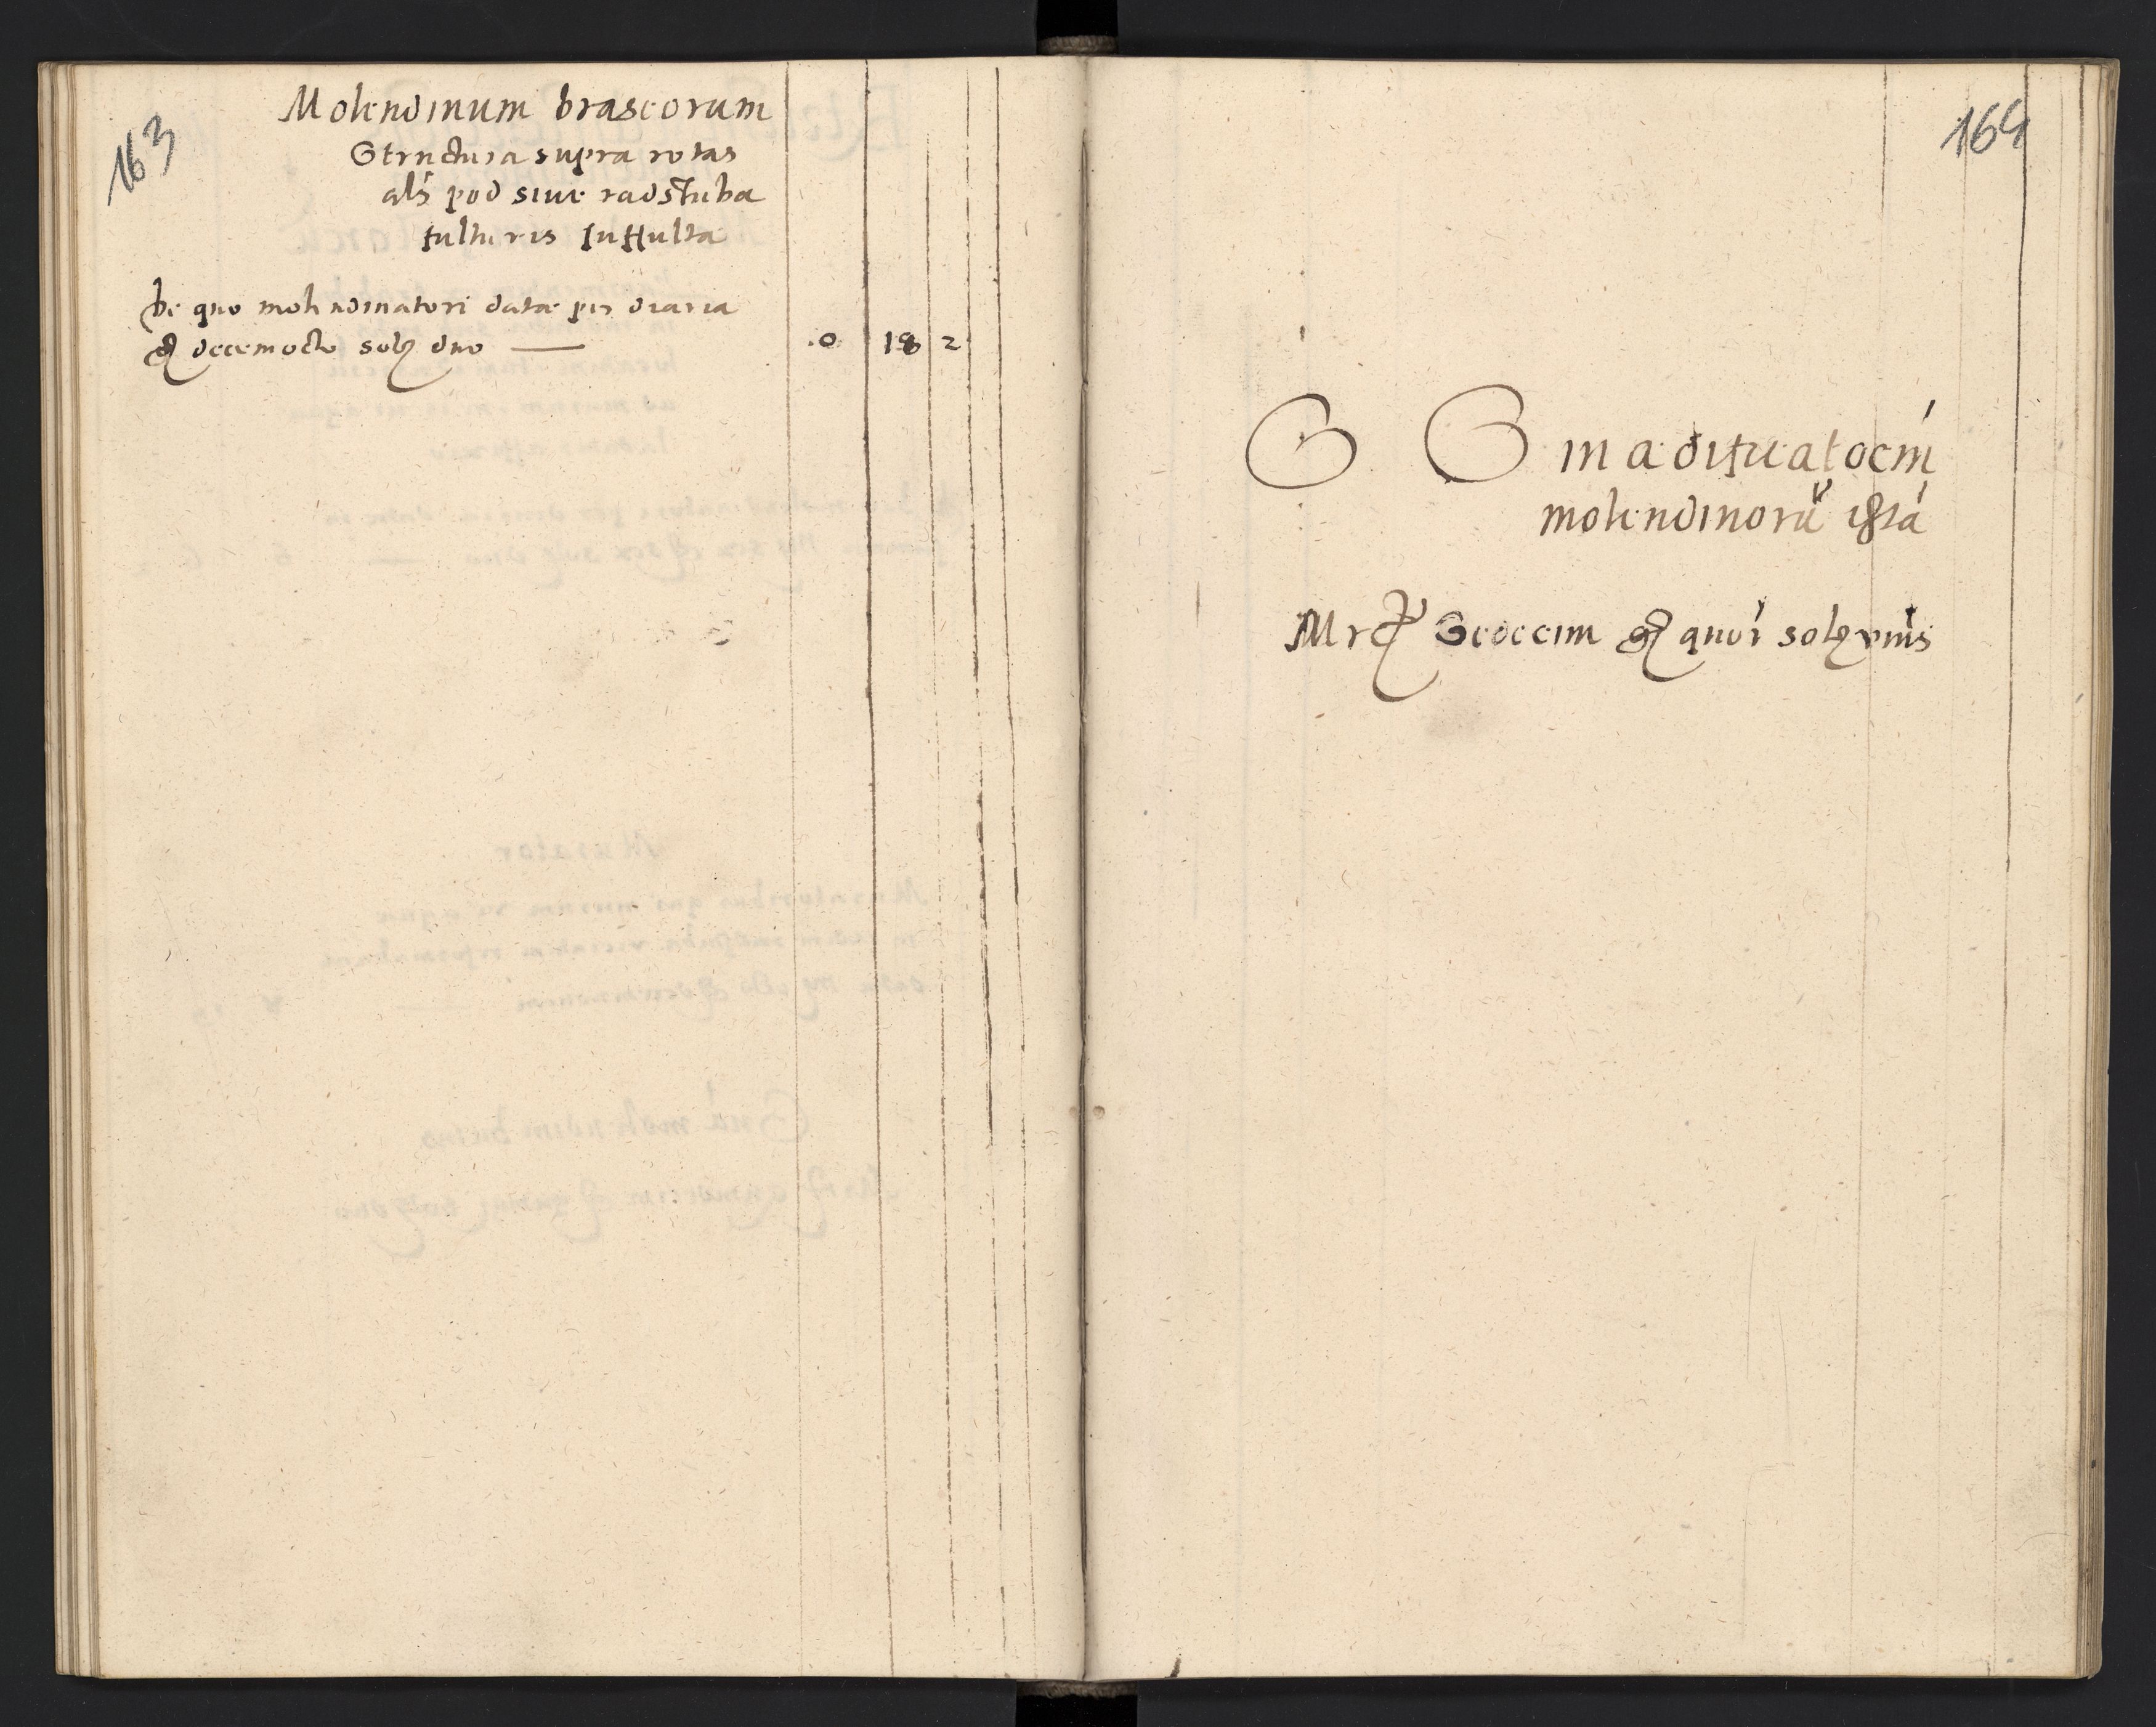 163
Molendinum braseorum
Structura supra rotas
als pod siue radstuba
fulturis suffulta
de quo molendinatori data per diaria
gr decemocto sol duo — 0 18 2
164
S S in adificatoem
molendinorũ ista
Mrc Sedecim gr quor sol vnus